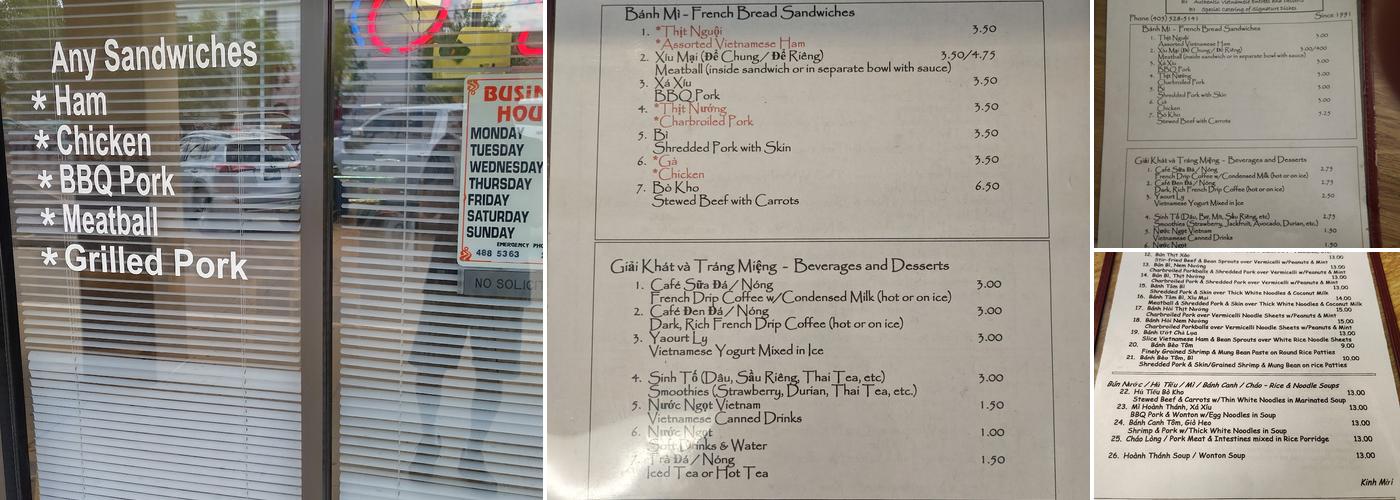 Any Sandwiches
* Ham
* Chicken
* BBQ Pork
* Meatball
* Grilled Pork
BUSIN
HOU
MONDAY
TUESDAY
WEDNESDAY
THURSDAY
FRIDAY
SATURDAY
SUNDAY
EMERGENCY PHO
488 5363
NO SOLICIT
Bánh Mì - French Bread Sandwiches
1. *Thịt Nguội 3.50
*Assorted Vietnamese Ham
2. Xíu Mại (Để Chung / Để Riêng) 3.50/4.75
Meatball (inside sandwich or in separate bowl with sauce)
3. Xá Xíu 3.50
BBQ Pork
4. *Thịt Nướng 3.50
*Charbroiled Pork
5. Bì 3.50
Shredded Pork with Skin
6. *Gà 3.50
*Chicken
7. Bò Kho 6.50
Stewed Beef with Carrots
Giải Khát và Tráng Miệng - Beverages and Desserts
1. Café Sữa Đá / Nóng 3.00
French Drip Coffee w/Condensed Milk (hot or on ice)
2. Café Đen Đá / Nóng 3.00
Dark, Rich French Drip Coffee (hot or on ice)
3. Yaourt Ly 3.00
Vietnamese Yogurt Mixed in Ice
4. Sinh Tố (Dâu, Sầu Riêng, Thai Tea, etc) 3.00
Smoothies (Strawberry, Durian, Thai Tea, etc.)
5. Nước Ngọt Vietnam 1.50
Vietnamese Canned Drinks
6. Nước Ngọt 1.00
Soft Drinks & Water
7. Trà Đá / Nóng 1.50
Iced Tea or Hot Tea
Special Catering of Signature Dishes
Phone (405) 528-5141 Since 1991
Bánh Mì - French Bread Sandwiches
1. Thịt Nguội 3.00
Assorted Vietnamese Ham
2. Xíu Mại (Để Chung / Để Riêng) 3.00/4.00
Meatball (inside sandwich or in separate bowl with sauce)
3. Xá Xíu 3.00
BBQ Pork
4. Thịt Nướng 3.00
Charbroiled Pork
5. Bì 3.00
Shredded Pork with Skin
6. Gà 3.00
Chicken
7. Bò Kho 5.25
Stewed Beef with Carrots
Giải Khát và Tráng Miệng - Beverages and Desserts
1. Café Sữa Đá / Nóng 2.75
French Drip Coffee w/Condensed Milk (hot or on ice)
2. Café Đen Đá / Nóng 2.75
Dark, Rich French Drip Coffee (hot or on ice)
3. Yaourt Ly 2.50
Vietnamese Yogurt Mixed in Ice
4. Sinh Tố (Dâu, Bơ, Mít, Sầu Riêng, etc) 2.75
Smoothies (Strawberry, Jackfruit, Avocado, Durian, etc.)
5. Nước Ngọt Vietnam 1.50
Vietnamese Canned Drinks
6. Nước Ngọt
12. Bún Thịt Xào 13.00
Stir-fried Beef & Bean Sprouts over Vermicelli w/Peanuts & Mint
13. Bún Bì, Nem Nướng 13.00
Charbroiled Porkballs & Shredded Pork over Vermicelli w/Peanuts & Mint
14. Bún Bì, Thịt Nướng 13.00
Charbroiled Pork & Shredded Pork over Vermicelli w/Peanuts & Mint
15. Bánh Tằm Bì 13.00
Shredded Pork & Skin over Thick White Noodles & Coconut Milk
16. Bánh Tằm Bì, Xíu Mại 14.00
Meatball & Shredded Pork & Skin over Thick White Noodles & Coconut Milk
17. Bánh Hỏi Thịt Nướng 15.00
Charbroiled Pork over Vermicelli Noodle Sheets w/Peanuts & Mint
18. Bánh Hỏi Nem Nướng 15.00
Charbroiled Porkballs over Vermicelli Noodle Sheets w/Peanuts & Mint
19. Bánh Ướt Chả Lụa 13.00
Slice Vietnamese Ham & Bean Sprouts over White Rice Noodle Sheets
20. Bánh Bèo Tôm 9.00
Finely Grained Shrimp & Mung Bean Paste on Round Rice Patties
21. Bánh Bèo Tôm, Bì 10.00
Shredded Pork & Skin/Grained Shrimp & Mung Bean on rice Patties
Bún Nước / Hủ Tiếu / Mì / Bánh Canh / Cháo - Rice & Noodle Soups
22. Hủ Tiếu Bò Kho 13.00
Stewed Beef & Carrots w/Thin White Noodles in Marinated Soup
23. Mì Hoành Thánh, Xá Xíu 13.00
BBQ Pork & Wonton w/Egg Noodles in Soup
24. Bánh Canh Tôm, Giò Heo 13.00
Shrimp & Pork w/Thick White Noodles in Soup
25. Cháo Lòng / Pork Meat & Intestines mixed in Rice Porridge 13.00
26. Hoành Thánh Soup / Wonton Soup 13.00
Kính Mời